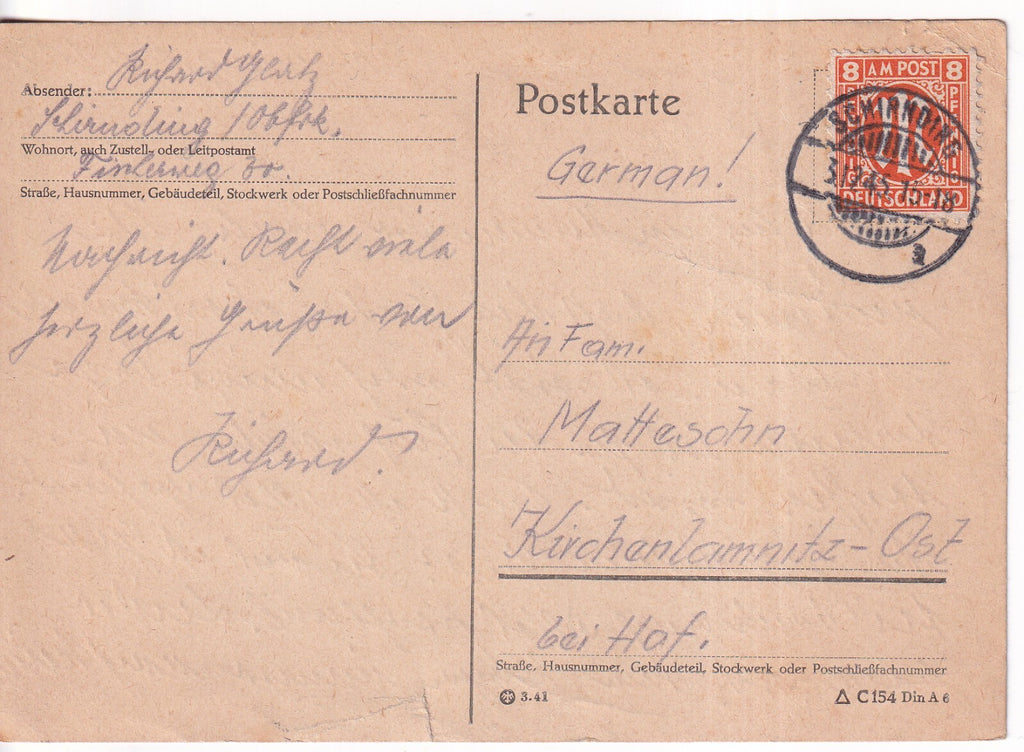 Richard Glatz
Absender:
Schirnding /Obfrk.
Wohnort, auch Zustell- oder Leitpostamt
Straße, Hausnummer, Gebäudeteil, Stockwerk oder Postschließfachnummer
Nachricht. Recht viele
herzliche Grüße von
Richard!
Postkarte
German!
8 AM POST 8
PF
DEUTSCHLAND
SCHIRNDING
45 15-18
a
An Fam.
Mattesohn
Kirchenlamnitz-Ost
bei Hof.
Straße, Hausnummer, Gebäudeteil, Stockwerk oder Postschließfachnummer
3.41
C 154 Din A 6